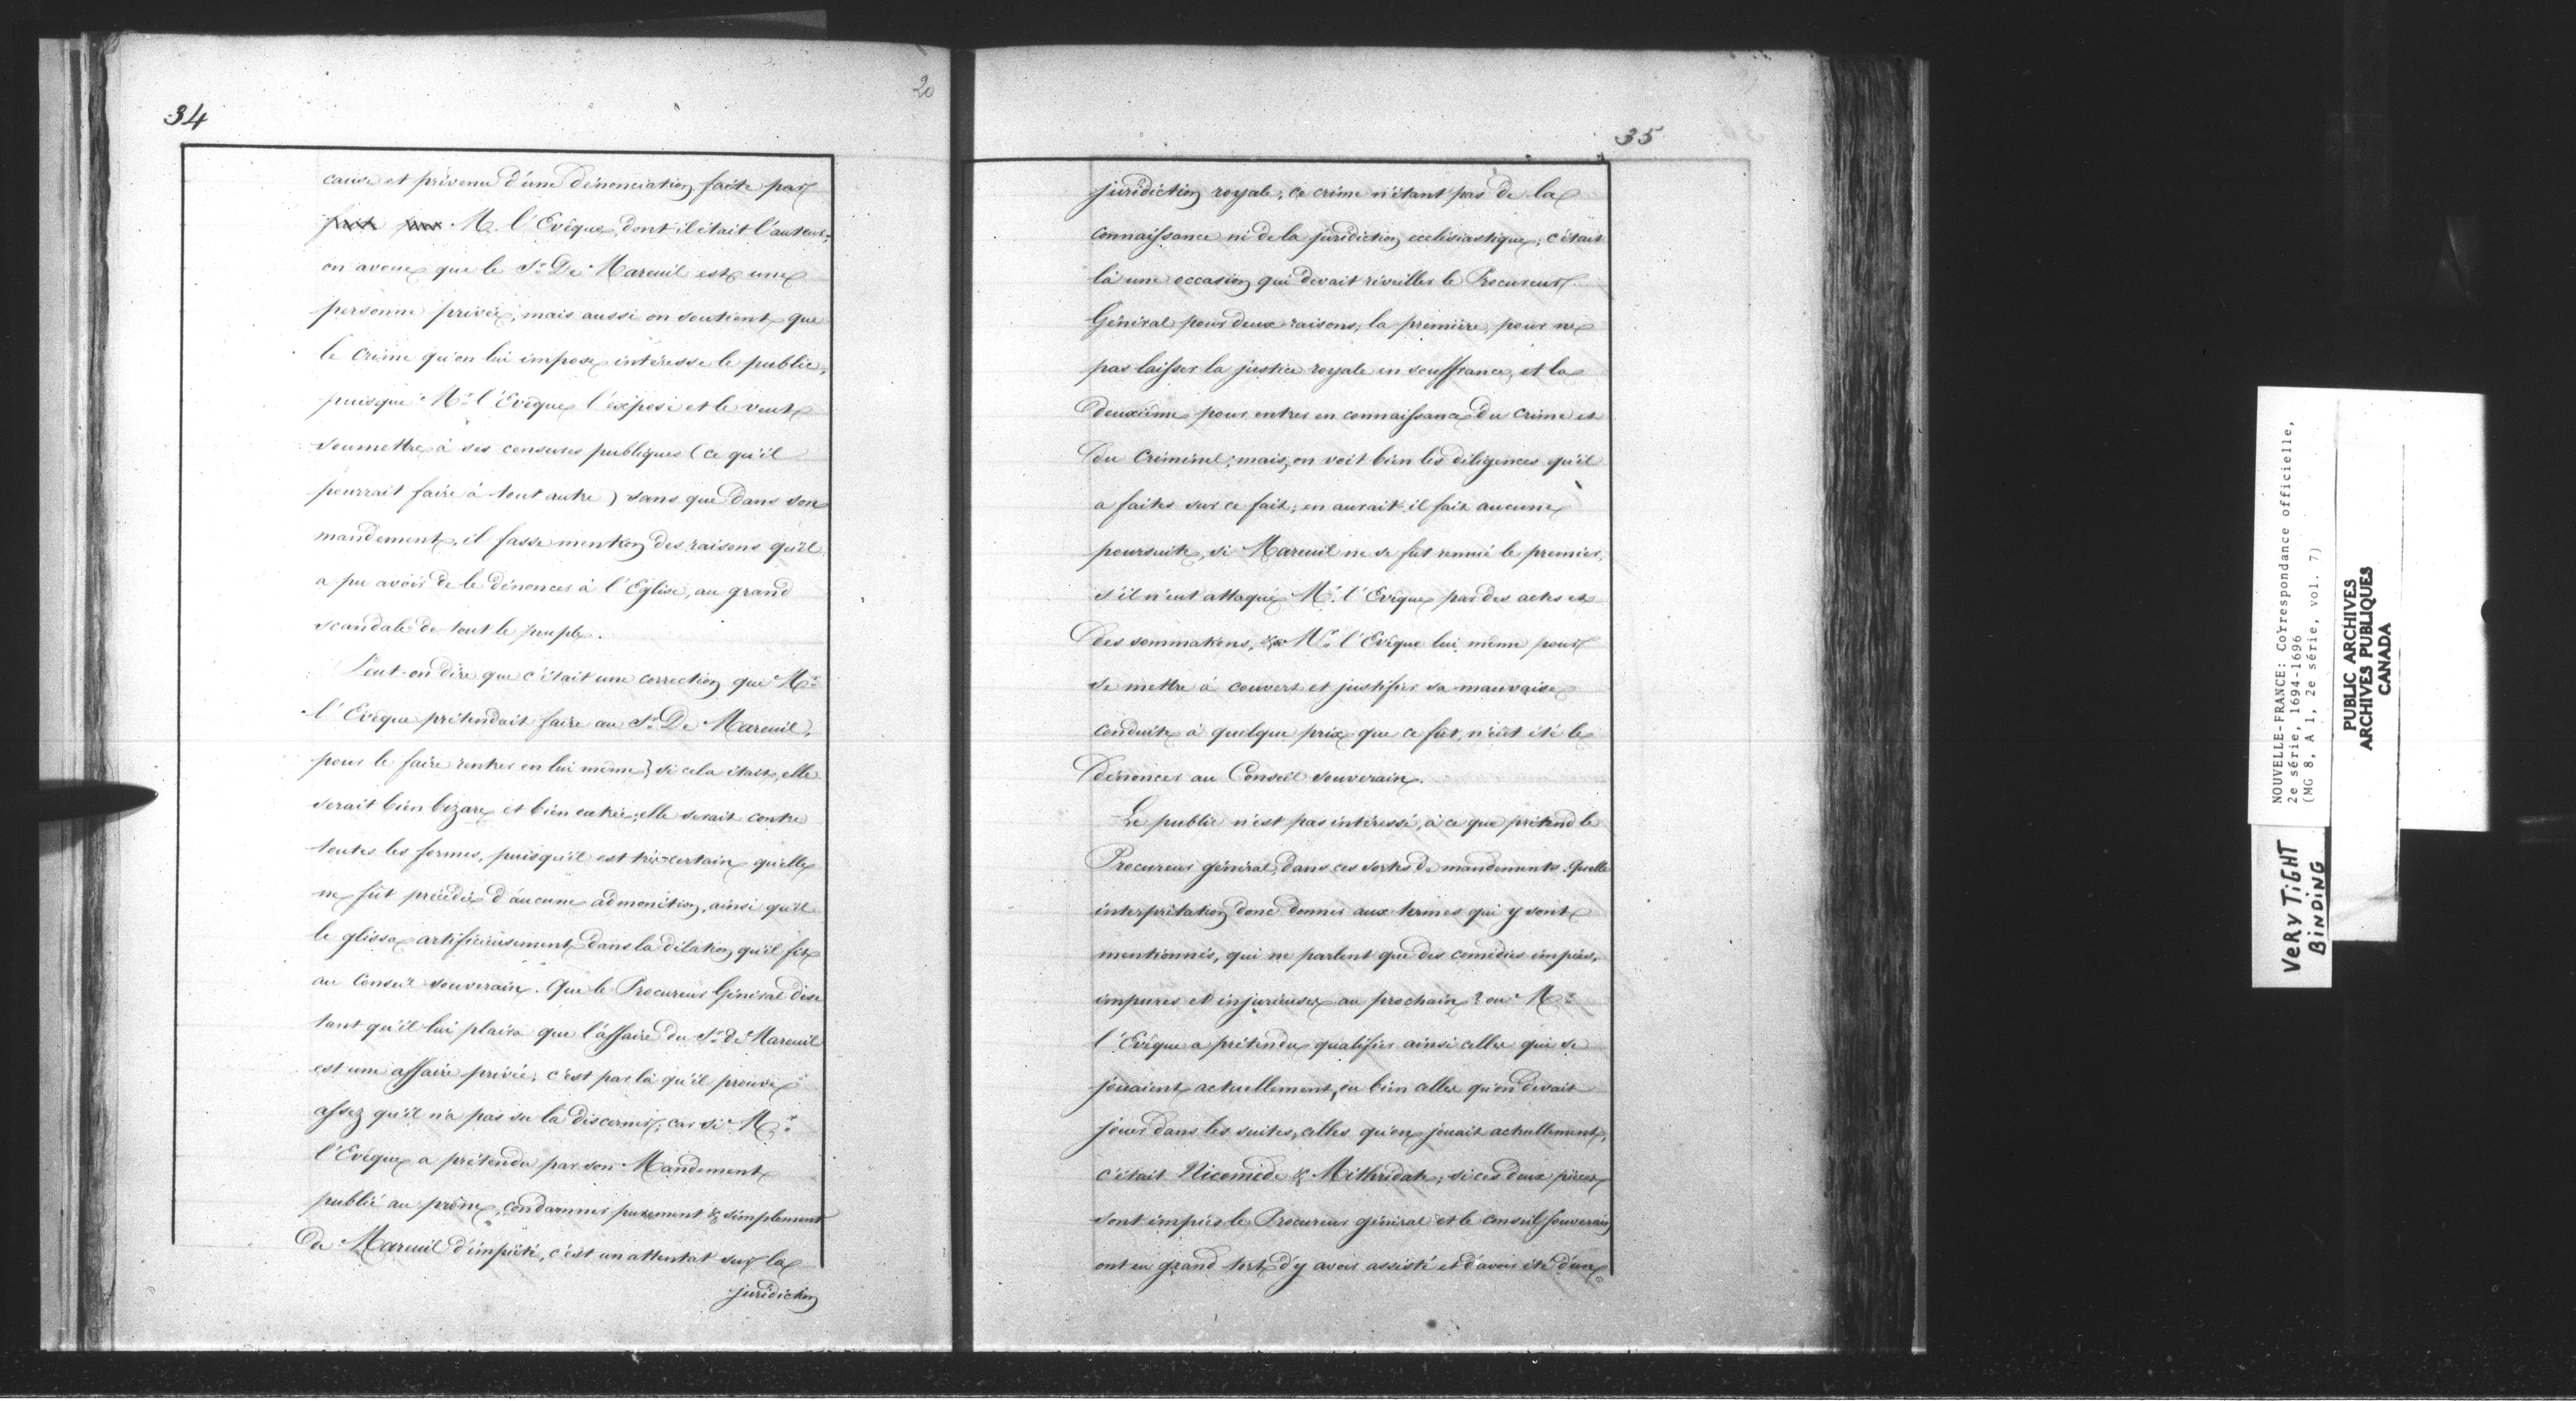 34
20
cause et prévenu d'une dénonciation faite par
M. l'Evêque, dont il était l'auteur;
on avoue que le Sr. De Mareuil est une
personne privée; mais aussi on soutient que
le crime qu'on lui impose intéresse le public,
puisque Mr. l'Evêque l'expose et le veut
soumettre à ses censures publiques (ce qu'il
pourrait faire à tout autre) sans que dans son
mandement, il fasse mention des raisons qu'il
a pu avoir de le dénoncer à l'Eglise, au grand
scandale de tout le peuple.
Peut-on dire que c'était une correction que Mr.
l'Evêque prétendait faire au Sr. De Mareuil,
pour le faire rentrer en lui même? si cela était, elle
serait bien bizare et bien outrée; elle serait contre
toutes les formes, puisqu'il est très-certain qu'elle
ne fût précédée d'aucune admonition, ainsi qu'il
le glissa artificieusement dans la délation qu'il fit
au Conseil souverain. Que le Procureur Général dise
tant qu'il lui plaira que l'affaire du Sr. de Mareuil
est une affaire privée; c'est par là qu'il prouve
assez qu'il n'a pas su la discerner; car si Mr.
l'Evêque a prétendu par son Mandement
publié au prône, condamner purement & simplement
De Mareuil d'impiété, c'est un attentat sur la
juridiction
35
juridiction royale; ce crime n'étant pas de la
connaissance ni de la juridiction ecclésiastique; c'était
là une occasion qui devait réveiller le Procureur
Général pour deux raisons; la première, pour ne
pas laisser la justice royale en souffrance, et la
deuxième pour entrer en connaissance du crime et
du criminel; mais, on voit bien les diligences qu'il
a faites sur ce fait; en aurait-il fait aucune
poursuite, si Mareuil ne se fut remué le premier,
s'il n'eut attaqué Mr. l'Evêque par des actes et
des sommations, Mr. l'Evêque lui même pour
se mettre à couvert et justifier sa mauvaise
conduite à quelque prix que ce fût, n'eût été le
dénoncer au Conseil souverain.
Le public n'est pas intéressé, à ce que prétend le
Procureur général, dans ces sortes de mandements. Quelle
interprétation donc donner aux termes qui y sont
mentionnés, qui ne parlent que des comédies impies,
impures et injurieuses au prochain? ou Mr.
l'Evêque a prétendu qualifier ainsi celles qui se
jouaient actuellement, ou bien celles qu'on devait
jouer dans les suites, celles qu'on jouait actuellement,
c'était Nicomède & Mithridate; si ces deux pièces
sont impies le Procureur général et le conseil souverain
ont eu grand tort d'y avoir assisté et d'avoir été d'une
NOUVELLE-FRANCE: Correspondance officielle,
2e série, 1694-1696
(MG 8, A 1, 2e série, vol. 7)
PUBLIC ARCHIVES
ARCHIVES PUBLIQUES
CANADA
VERY TIGHT
BINDING